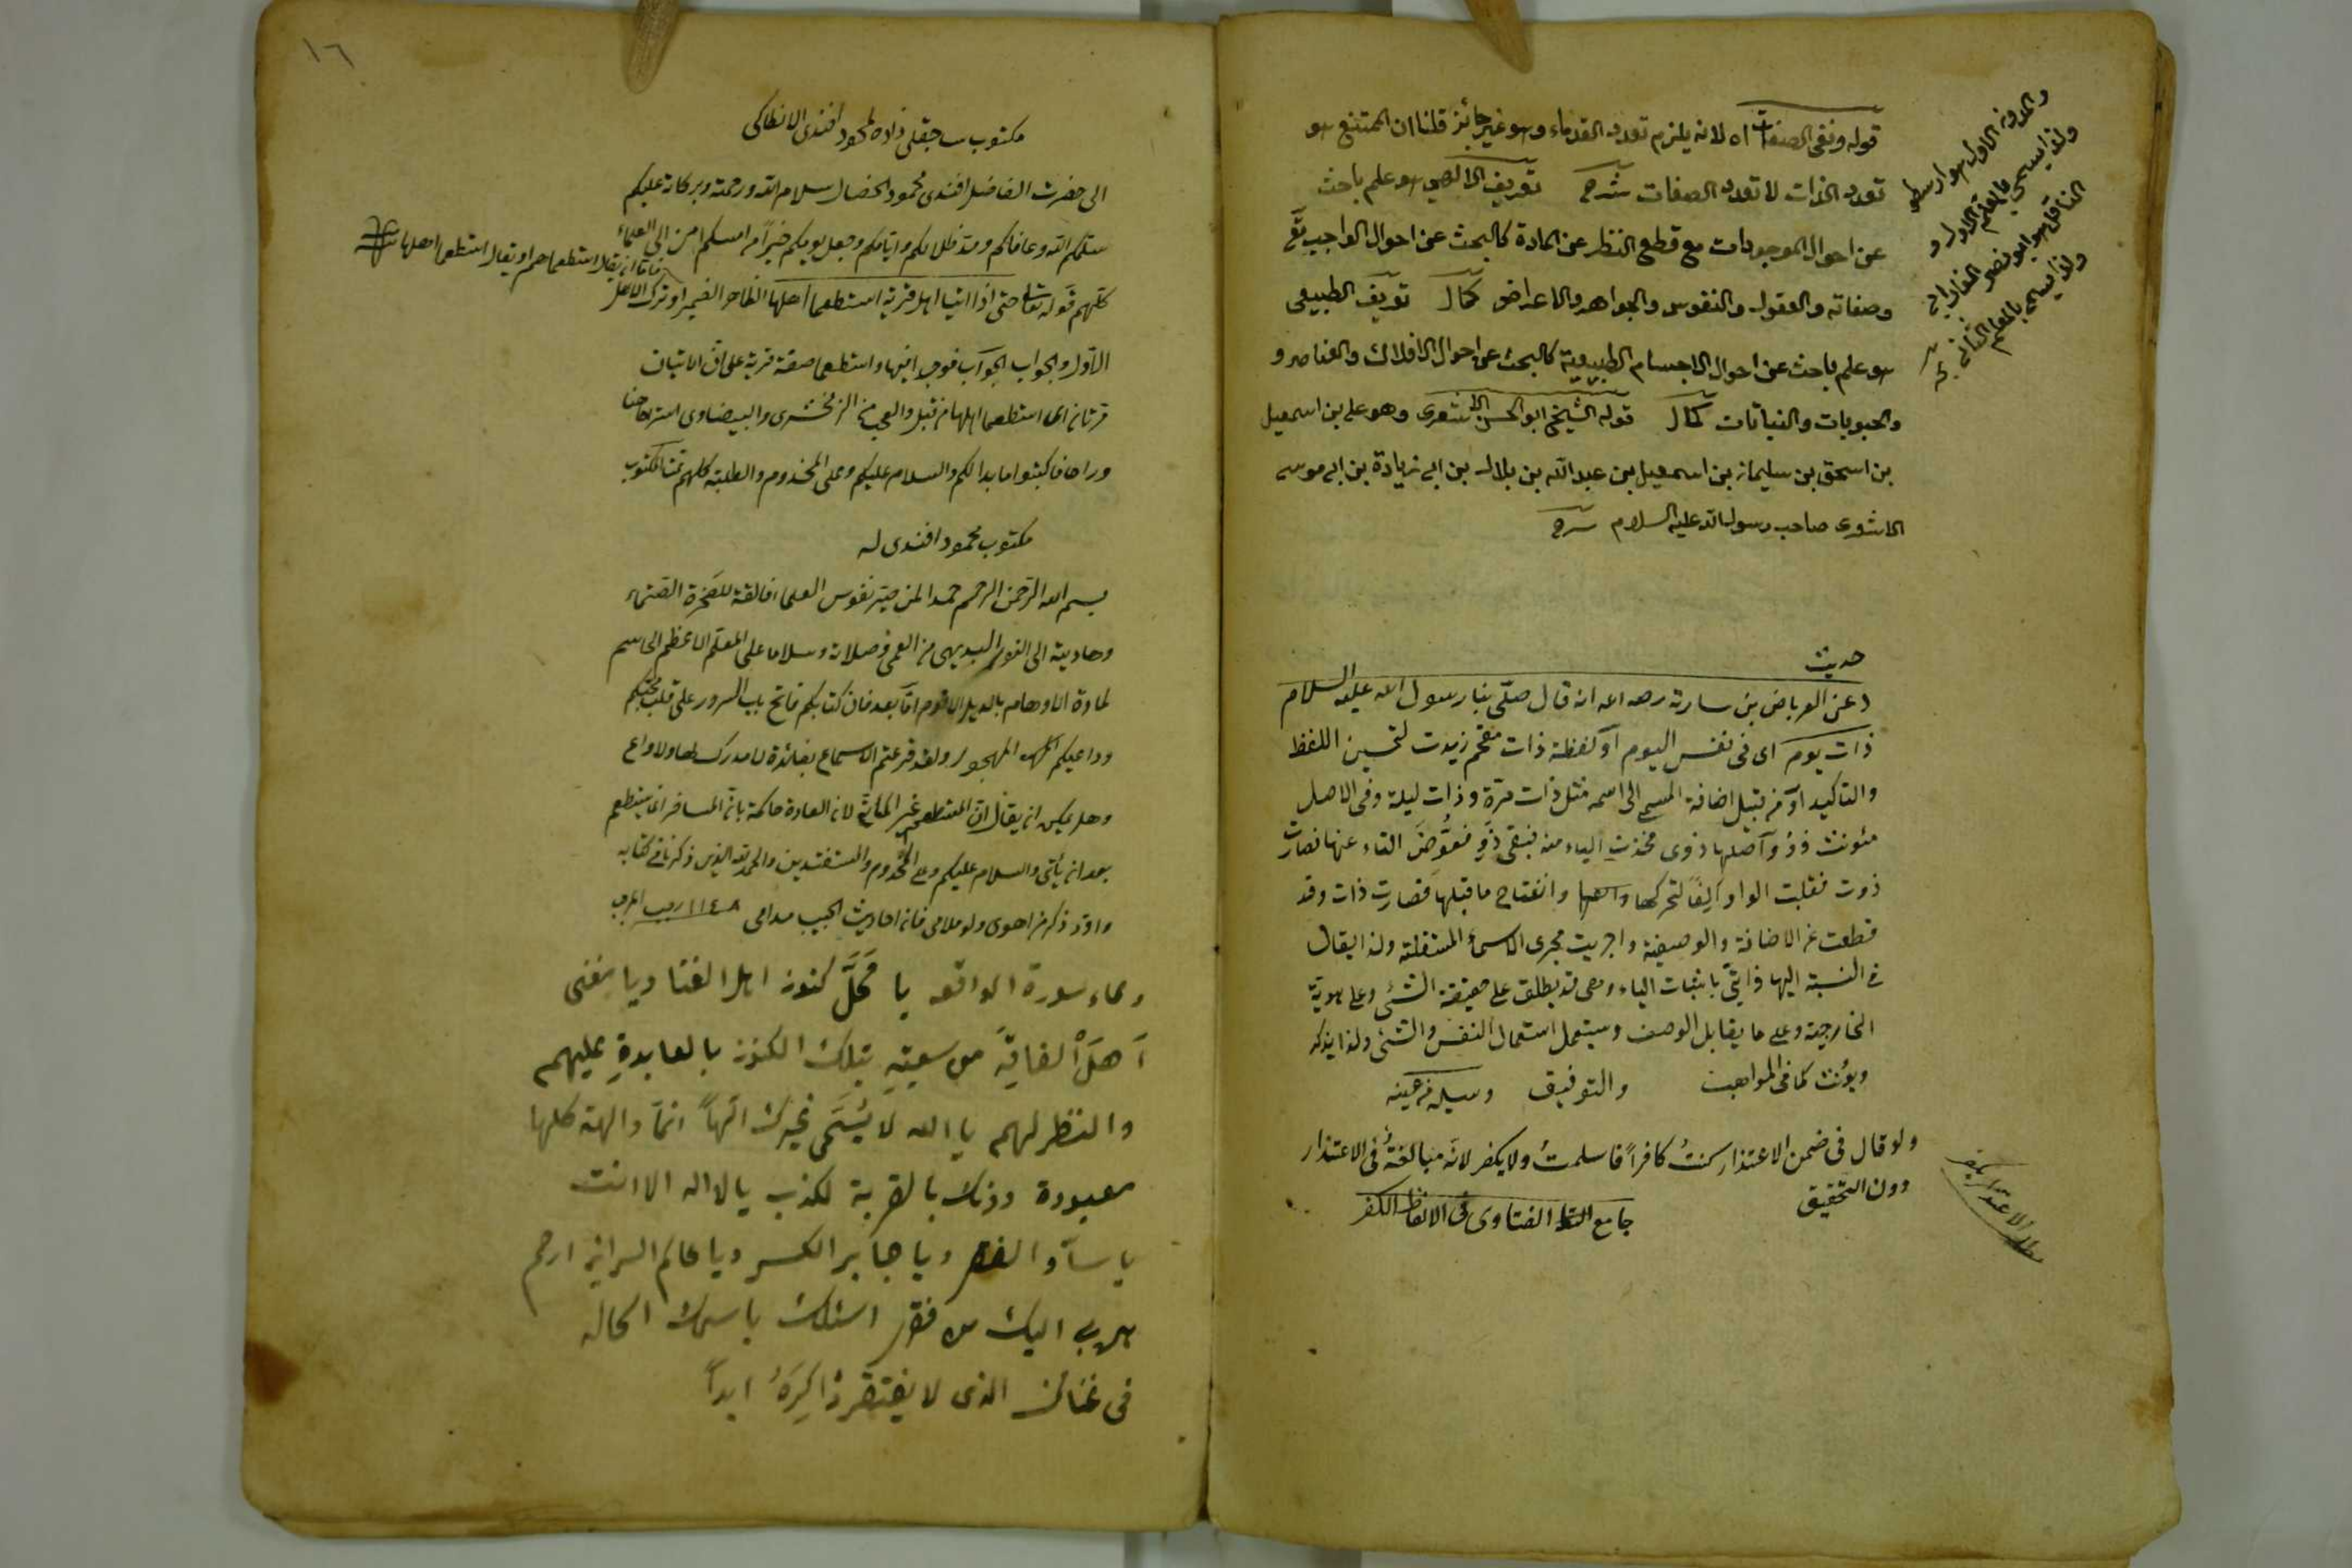 قوله ونفى الصفات اه لانه يلزم تعدد القدماء وهو غير جائز قلنا ان الممتنع هو
تعدد الذات لا تعدد الصفات شرح تعريف الالهى هو علم باحث
عن احوال الموجودات مع قطع النظر عن المادة كالبحث عن احوال الواجب تع
وصفاته والعقول والنفوس والجواهر والاعراض كمال تعريف الطبيعى
هو علم باحث عن احوال الاجسام الطبيعية كالبحث عن احوال الافلاك والعناصر و
والنباتات كمال قوله الشيخ ابو الحسن الاشعرى وهو على بن اسمعيل
بن اسحق بن سليمان بن اسمعيل بن عبد الله بن بلال بن ابى زيادة بن ابى موسى
الاشعرى صاحب رسول الله عليه السلام شرح
والمدونه الاول هو ارسطو
ولذا يسمى بالمعلم الاول و
الناقل هو ابو نصر الفارابى
ولذا يسمى بالمعلم الثانى
حديث
عن العرباض بن سارية رحمه الله انه قال صلى بنا رسول الله عليه السلام
ذات يوم اى فى نفس اليوم او لفظة ذات مقحم زيدت لتحسين اللفظ
والتاكيد او من قبيل اضافة المسمى الى اسمه مثل ذات مرة وذات ليلة وفى الاصل
مئونث ذو واصلها ذوى فحذفت الياء منه فبقى ذو فعوض التاء عنها فصارت
ذوت فقلبت الواو الفا لتحركها وانفتاح ما قبلها فصارت ذات وقد
قطعت عن الاضافة والوصفية واجريت مجرى الاسماء المستقلة ولذا يقال
فى النسبة اليها ذاتى باثبات الياء وهى قد يطلق على حقيقة الشئى وعلى هوية
الخارجية وعلى ما يقابل الوصف ويستعمل استعمال النفس والشئى ولذا يذكر
ويؤنث كما فى المواهب والتوفيق
ولو قال فى ضمن الاعتذار كنت كافرا فاسلمت ولا يكفر لانه مبالغة فى الاعتذار
دون التحقيق جامع الفتاوى فى الالفاظ الكفر
١٦
مكتوب ساجقلى زاده لمحمود افندى الانطاكى
الى حضرت الفاضل افندى محمود الخصال سلام الله ورحمته وبركاته عليكم
سلمكم الله وعافاكم ومد ظلالكم وايامكم وجعل يومكم خيرا من امسكم امن الى العلماء
كلهم قوله تعالى حتى اذا اتيا اهل قرية استطعما اهلها الظاهر الضمير او ترك الاهل
الاول والجواب الجواب فوجد فيها واستطعما صفة قرية على ان الاتيان
استطعما اهلها من قبل والعجب من الزمخشرى والبيضاوى استراحا
وراحا فاكتبوا ما بدا لكم والسلام عليكم وعلى المخدوم والطلبة كلهم تمت المكتوب
مكتوب محمود افندى له
بسم الله الرحمن الرحيم حمدا لمن صير نفوس العلماء فالقة للصخرة الصماء
وهادية الى النور البديهى من العمى وصلاة وسلاما على المعلم الاعظم الحاسم
لمادة الاوهام بالدليل الاقوم اما بعد فان كتابكم فاتح باب السرور على قلب محبكم
وداعيكم المهجور ولقد قرعتم الاسماع بفائدة لا مدرك لها ولا واع
وهل يمكن ان يقال ان المستطعم غير الماتى لان العادة حاكمة بان المسافر انما يستطعم
بعد ان يأتى والسلام عليكم وعلى المخدوم والمستفيدين والحمد لله الذى ذكرنا فى كتابه
وادر ذكر من اهوى ولو ملامى فان احاديث الحبيب مدامى ١١٤٨ رجب
دعاء سورة الواقعه يا محل كنوز اهل الغنا ويا مغنى
اهل الفاقة من سعة تلك الكنوز بالعابدة عليهم
والنظر لهم يا الله لا يسمى غيرك الها انما والهة كلها
معبودة دونك بالفرية لكذب يا لا اله الا انت
يا ساد الفقر ويا جابر الكسر ويا عالم السرائر ارحم
هربى اليك من فقر اسئلك باسمك الحال
فى غنائك الذى لا يفتقر ذاكره ابدا